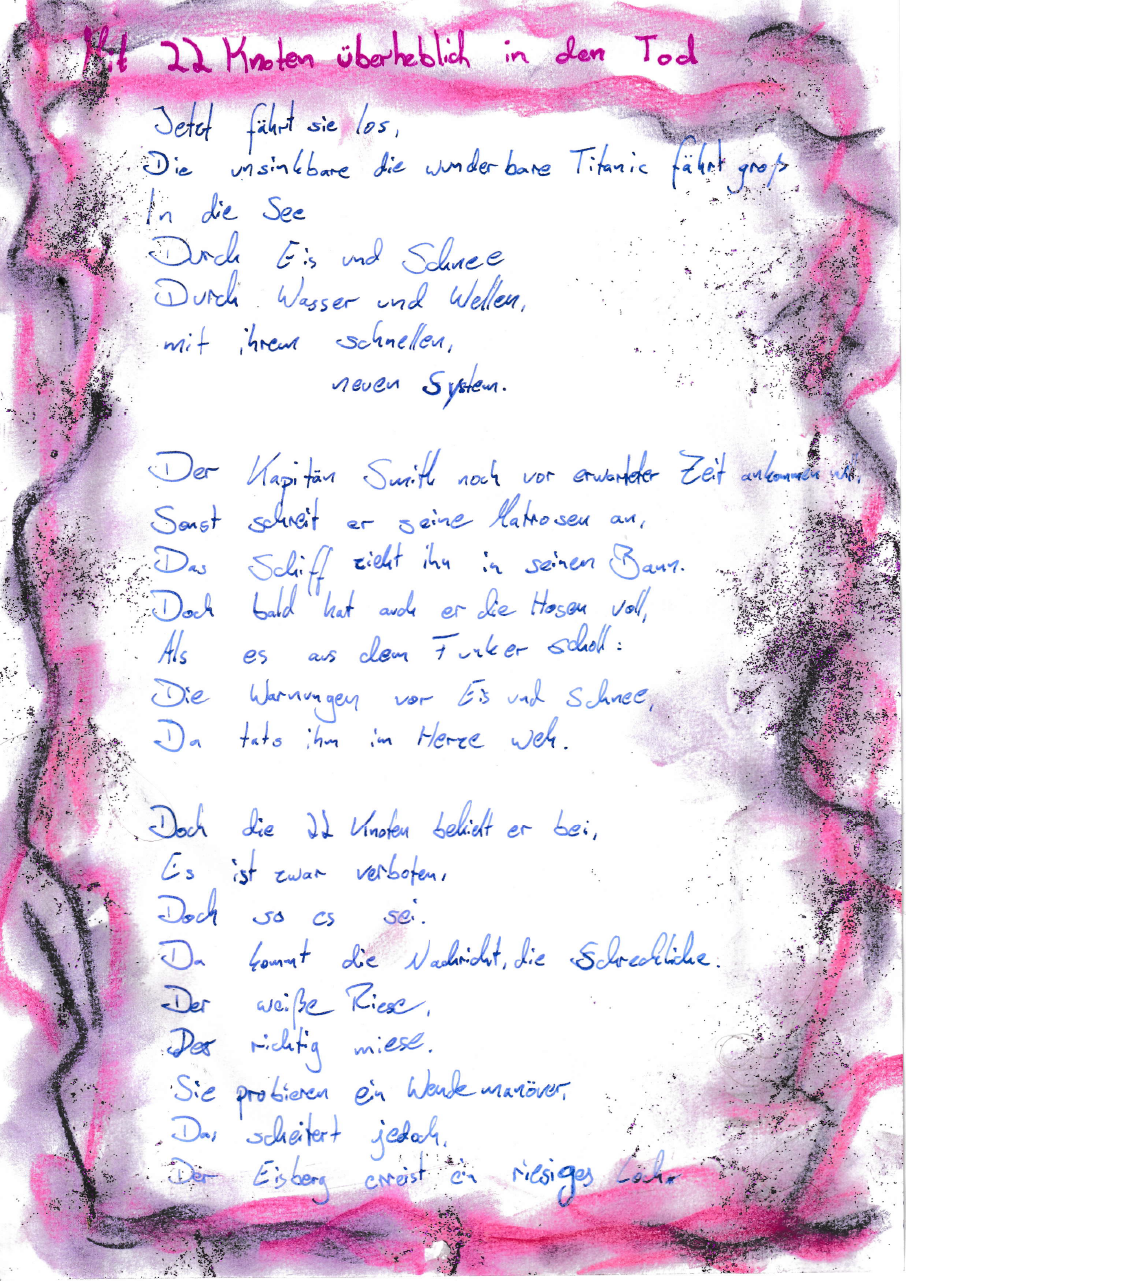 Mit 22 Knoten überheblich in den Tod
Jetzt fährt sie los,
Die unsinkbare die wunderbare Titanic fährt groß
In die See
Durch Eis und Schnee
Durch Wasser und Wellen,
mit ihrem schnellen,
neuen System.
Der Kapitän Smith noch vor erwarteter Zeit ankommen will,
Sonst schreit er seine Matrosen an,
Das Schiff zieht ihn in seinen Bann.
Doch bald hat auch er die Hosen voll,
Als es aus dem Funker scholl:
Die Warnungen vor Eis und Schnee,
Da tats ihm im Herze weh.
Doch die 22 Knoten behielt er bei,
Es ist zwar verboten,
Doch so es sei.
Da kommt die Nachricht, die Schreckliche.
Der weiße Riese,
Der richtig miese.
Sie probieren ein Wendemanöver,
Das scheitert jedoch,
Der Eisberg erreist ein riesiges Loch.